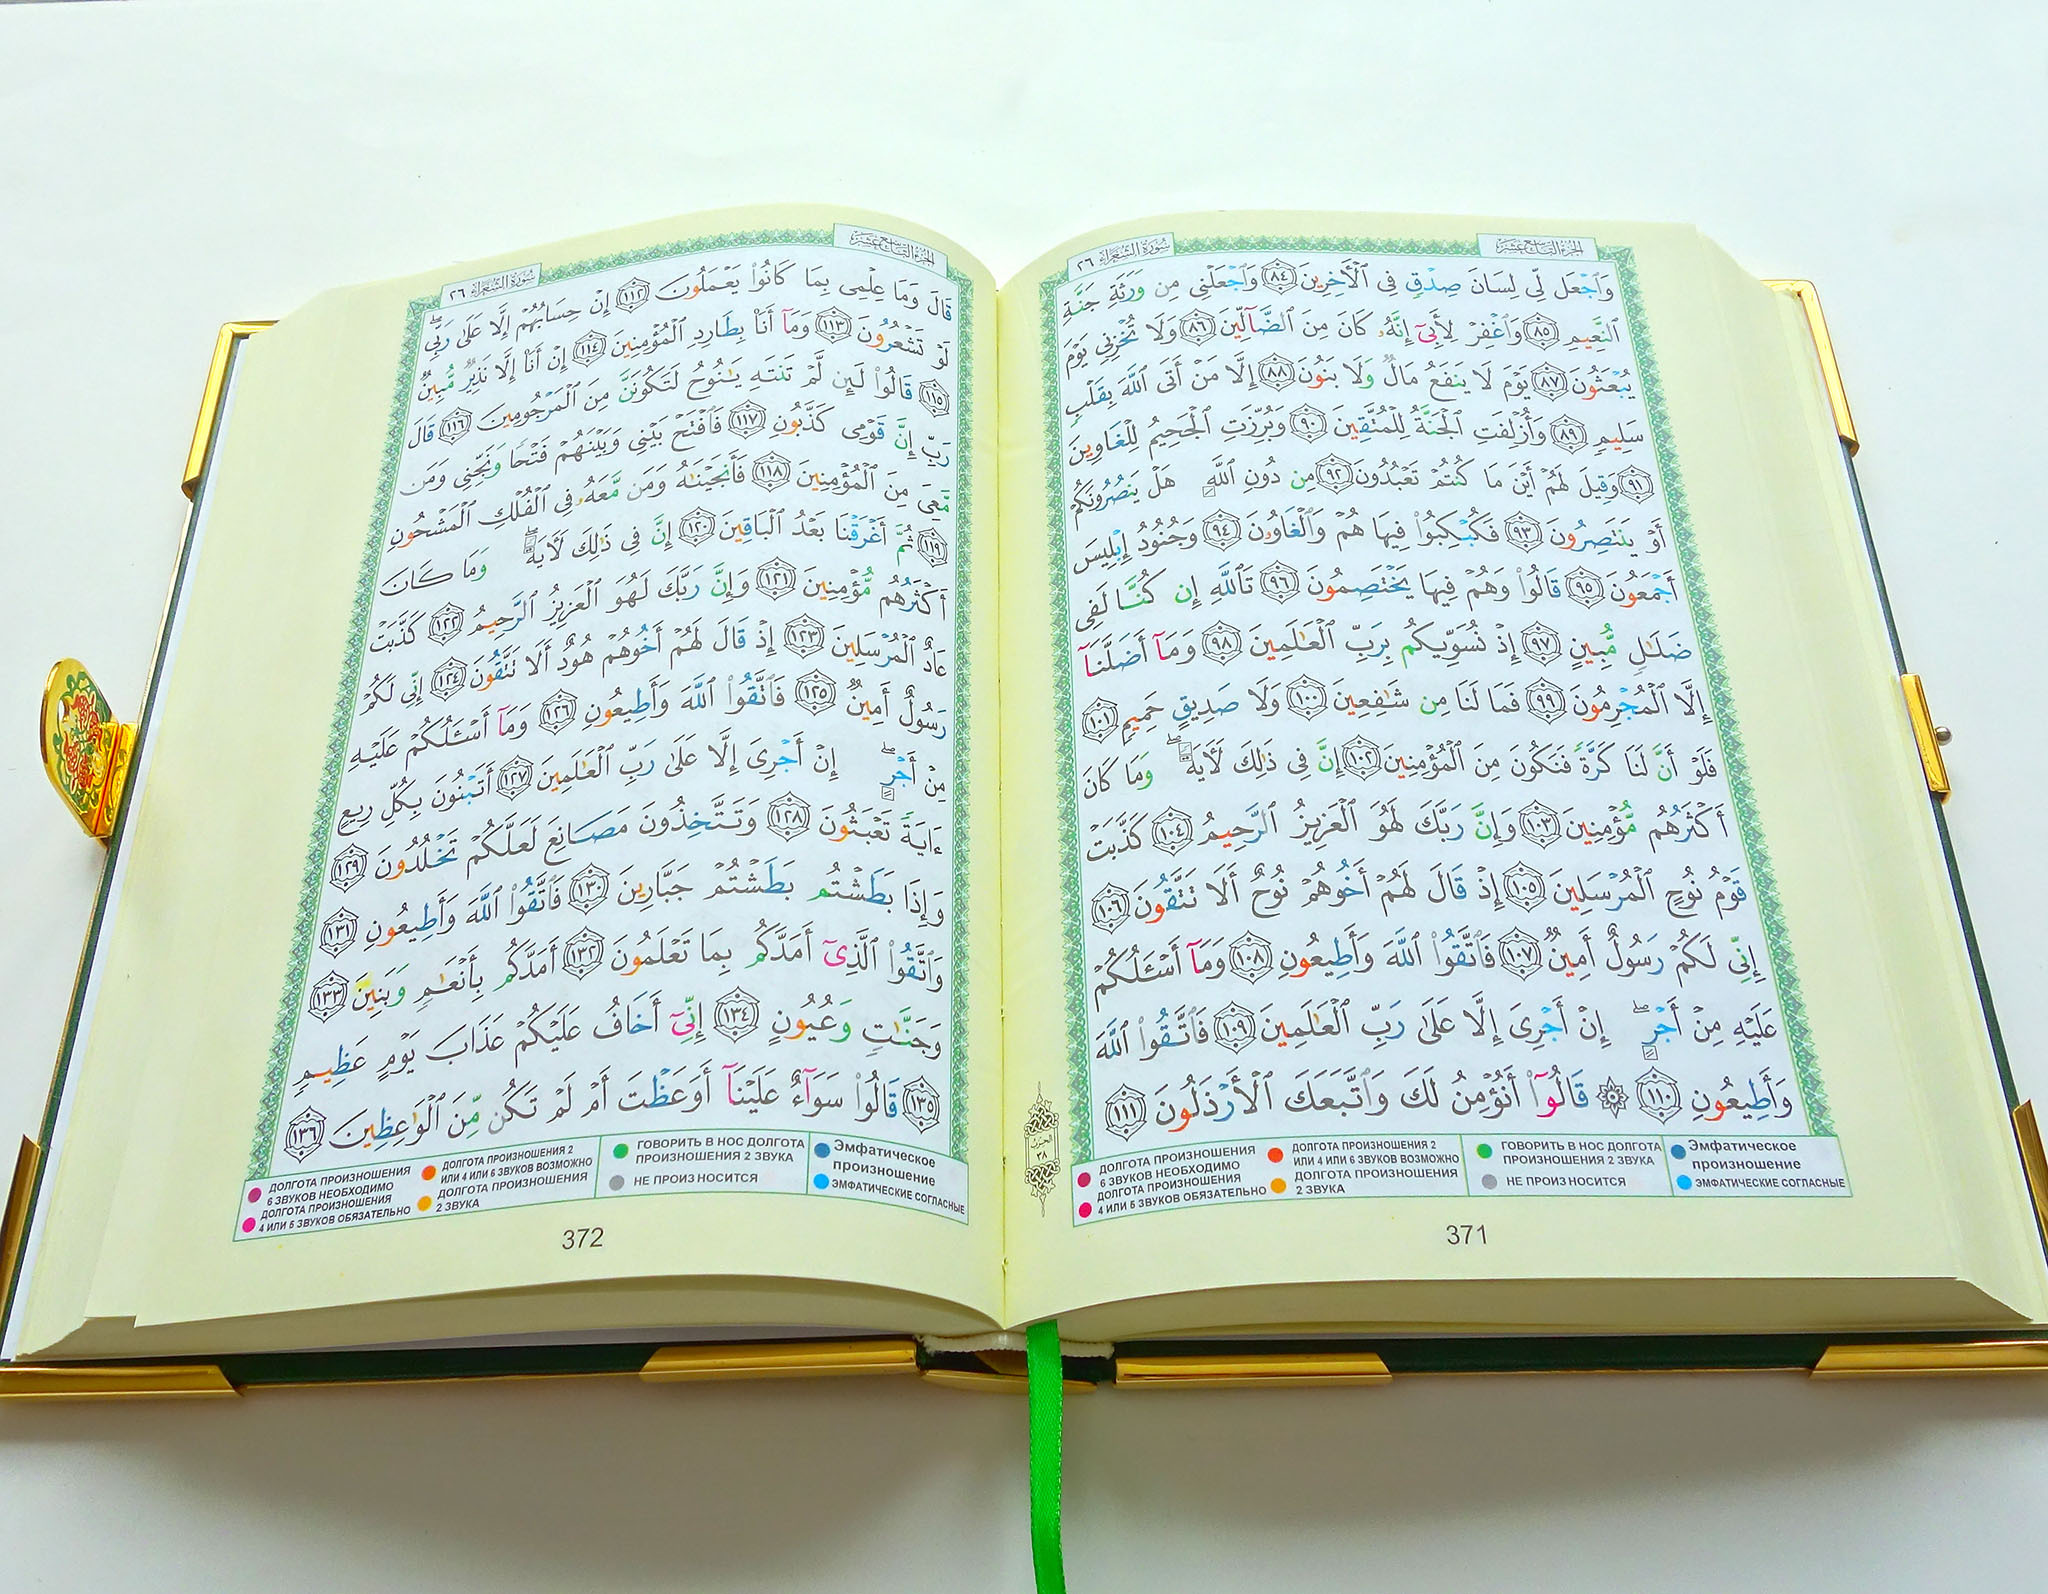 الجزء التاسع عشر
سورة الشعراء ٢٦
وَٱجْعَل لِّى لِسَانَ صِدْقٍ فِى ٱلْأَخِرِينَ ٨٤ وَٱجْعَلْنِى مِن وَرَثَةِ جَنَّةِ
ٱلنَّعِيمِ ٨٥ وَٱغْفِرْ لِأَبِىٓ إِنَّهُۥ كَانَ مِنَ ٱلضَّآلِّينَ ٨٦ وَلَا تُخْزِنِى يَوْمَ
يُبْعَثُونَ ٨٧ يَوْمَ لَا يَنفَعُ مَالٌ وَلَا بَنُونَ ٨٨ إِلَّا مَنْ أَتَى ٱللَّهَ بِقَلْبٍ
سَلِيمٍ ٨٩ وَأُزْلِفَتِ ٱلْجَنَّةُ لِلْمُتَّقِينَ ٩٠ وَبُرِّزَتِ ٱلْجَحِيمُ لِلْغَاوِينَ
٩١ وَقِيلَ لَهُمْ أَيْنَ مَا كُنتُمْ تَعْبُدُونَ ٩٢ مِن دُونِ ٱللَّهِ هَلْ يَنصُرُونَكُمْ
أَوْ يَنتَصِرُونَ ٩٣ فَكُبْكِبُوا۟ فِيهَا هُمْ وَٱلْغَاوُۥنَ ٩٤ وَجُنُودُ إِبْلِيسَ
أَجْمَعُونَ ٩٥ قَالُوا۟ وَهُمْ فِيهَا يَخْتَصِمُونَ ٩٦ تَٱللَّهِ إِن كُنَّا لَفِى
ضَلَٰلٍ مُّبِينٍ ٩٧ إِذْ نُسَوِّيكُم بِرَبِّ ٱلْعَٰلَمِينَ ٩٨ وَمَآ أَضَلَّنَآ
إِلَّا ٱلْمُجْرِمُونَ ٩٩ فَمَا لَنَا مِن شَٰفِعِينَ ١٠٠ وَلَا صَدِيقٍ حَمِيمٍ ١٠١
فَلَوْ أَنَّ لَنَا كَرَّةً فَنَكُونَ مِنَ ٱلْمُؤْمِنِينَ ١٠٢ إِنَّ فِى ذَٰلِكَ لَأَيَةً ۖ وَمَا كَانَ
أَكْثَرُهُم مُّؤْمِنِينَ ١٠٣ وَإِنَّ رَبَّكَ لَهُوَ ٱلْعَزِيزُ ٱلرَّحِيمُ ١٠٤ كَذَّبَتْ
قَوْمُ نُوحٍ ٱلْمُرْسَلِينَ ١٠٥ إِذْ قَالَ لَهُمْ أَخُوهُمْ نُوحٌ أَلَا تَتَّقُونَ ١٠٦
إِنِّى لَكُمْ رَسُولٌ أَمِينٌ ١٠٧ فَٱتَّقُوا۟ ٱللَّهَ وَأَطِيعُونِ ١٠٨ وَمَآ أَسْـَٔلُكُمْ
عَلَيْهِ مِنْ أَجْرٍ ۖ إِنْ أَجْرِىَ إِلَّا عَلَىٰ رَبِّ ٱلْعَٰلَمِينَ ١٠٩ فَٱتَّقُوا۟ ٱللَّهَ
وَأَطِيعُونِ ١١٠ ۞ قَالُوٓا۟ أَنُؤْمِنُ لَكَ وَٱتَّبَعَكَ ٱلْأَرْذَلُونَ ١١١
الحزب
٣٨
ДОЛГОТА ПРОИЗНОШЕНИЯ
6 ЗВУКОВ НЕОБХОДИМО
ДОЛГОТА ПРОИЗНОШЕНИЯ
4 ИЛИ 5 ЗВУКОВ ОБЯЗАТЕЛЬНО
ДОЛГОТА ПРОИЗНОШЕНИЯ 2
ИЛИ 4 ИЛИ 6 ЗВУКОВ ВОЗМОЖНО
ДОЛГОТА ПРОИЗНОШЕНИЯ
2 ЗВУКА
ГОВОРИТЬ В НОС ДОЛГОТА
ПРОИЗНОШЕНИЯ 2 ЗВУКА
НЕ ПРОИЗ НОСИТСЯ
Эмфатическое
произношение
ЭМФАТИЧЕСКИЕ СОГЛАСНЫЕ
371
الجزء التاسع عشر
سورة الشعراء ٢٦
قَالَ وَمَا عِلْمِى بِمَا كَانُوا۟ يَعْمَلُونَ ١١٢ إِنْ حِسَابُهُمْ إِلَّا عَلَىٰ رَبِّى ۖ
لَوْ تَشْعُرُونَ ١١٣ وَمَآ أَنَا۠ بِطَارِدِ ٱلْمُؤْمِنِينَ ١١٤ إِنْ أَنَا۠ إِلَّا نَذِيرٌ مُّبِينٌ
١١٥ قَالُوا۟ لَئِن لَّمْ تَنتَهِ يَٰنُوحُ لَتَكُونَنَّ مِنَ ٱلْمَرْجُومِينَ ١١٦ قَالَ
رَبِّ إِنَّ قَوْمِى كَذَّبُونِ ١١٧ فَٱفْتَحْ بَيْنِى وَبَيْنَهُمْ فَتْحًا وَنَجِّنِى وَمَن
مَّعِىَ مِنَ ٱلْمُؤْمِنِينَ ١١٨ فَأَنجَيْنَٰهُ وَمَن مَّعَهُۥ فِى ٱلْفُلْكِ ٱلْمَشْحُونِ
١١٩ ثُمَّ أَغْرَقْنَا بَعْدُ ٱلْبَاقِينَ ١٢٠ إِنَّ فِى ذَٰلِكَ لَأَيَةً ۖ وَمَا كَانَ
أَكْثَرُهُم مُّؤْمِنِينَ ١٢١ وَإِنَّ رَبَّكَ لَهُوَ ٱلْعَزِيزُ ٱلرَّحِيمُ ١٢٢ كَذَّبَتْ
عَادٌ ٱلْمُرْسَلِينَ ١٢٣ إِذْ قَالَ لَهُمْ أَخُوهُمْ هُودٌ أَلَا تَتَّقُونَ ١٢٤ إِنِّى لَكُمْ
رَسُولٌ أَمِينٌ ١٢٥ فَٱتَّقُوا۟ ٱللَّهَ وَأَطِيعُونِ ١٢٦ وَمَآ أَسْـَٔلُكُمْ عَلَيْهِ
مِنْ أَجْرٍ ۖ إِنْ أَجْرِىَ إِلَّا عَلَىٰ رَبِّ ٱلْعَٰلَمِينَ ١٢٧ أَتَبْنُونَ بِكُلِّ رِيعٍ
ءَايَةً تَعْبَثُونَ ١٢٨ وَتَتَّخِذُونَ مَصَانِعَ لَعَلَّكُمْ تَخْلُدُونَ ١٢٩
وَإِذَا بَطَشْتُم بَطَشْتُمْ جَبَّارِينَ ١٣٠ فَٱتَّقُوا۟ ٱللَّهَ وَأَطِيعُونِ ١٣١
وَٱتَّقُوا۟ ٱلَّذِىٓ أَمَدَّكُم بِمَا تَعْلَمُونَ ١٣٢ أَمَدَّكُم بِأَنْعَٰمٍ وَبَنِينَ ١٣٣
وَجَنَّٰتٍ وَعُيُونٍ ١٣٤ إِنِّىٓ أَخَافُ عَلَيْكُمْ عَذَابَ يَوْمٍ عَظِيمٍ
١٣٥ قَالُوا۟ سَوَآءٌ عَلَيْنَآ أَوَعَظْتَ أَمْ لَمْ تَكُن مِّنَ ٱلْوَٰعِظِينَ ١٣٦
ДОЛГОТА ПРОИЗНОШЕНИЯ
6 ЗВУКОВ НЕОБХОДИМО
ДОЛГОТА ПРОИЗНОШЕНИЯ
4 ИЛИ 5 ЗВУКОВ ОБЯЗАТЕЛЬНО
ДОЛГОТА ПРОИЗНОШЕНИЯ 2
ИЛИ 4 ИЛИ 6 ЗВУКОВ ВОЗМОЖНО
ДОЛГОТА ПРОИЗНОШЕНИЯ
2 ЗВУКА
ГОВОРИТЬ В НОС ДОЛГОТА
ПРОИЗНОШЕНИЯ 2 ЗВУКА
НЕ ПРОИЗ НОСИТСЯ
Эмфатическое
произношение
ЭМФАТИЧЕСКИЕ СОГЛАСНЫЕ
372